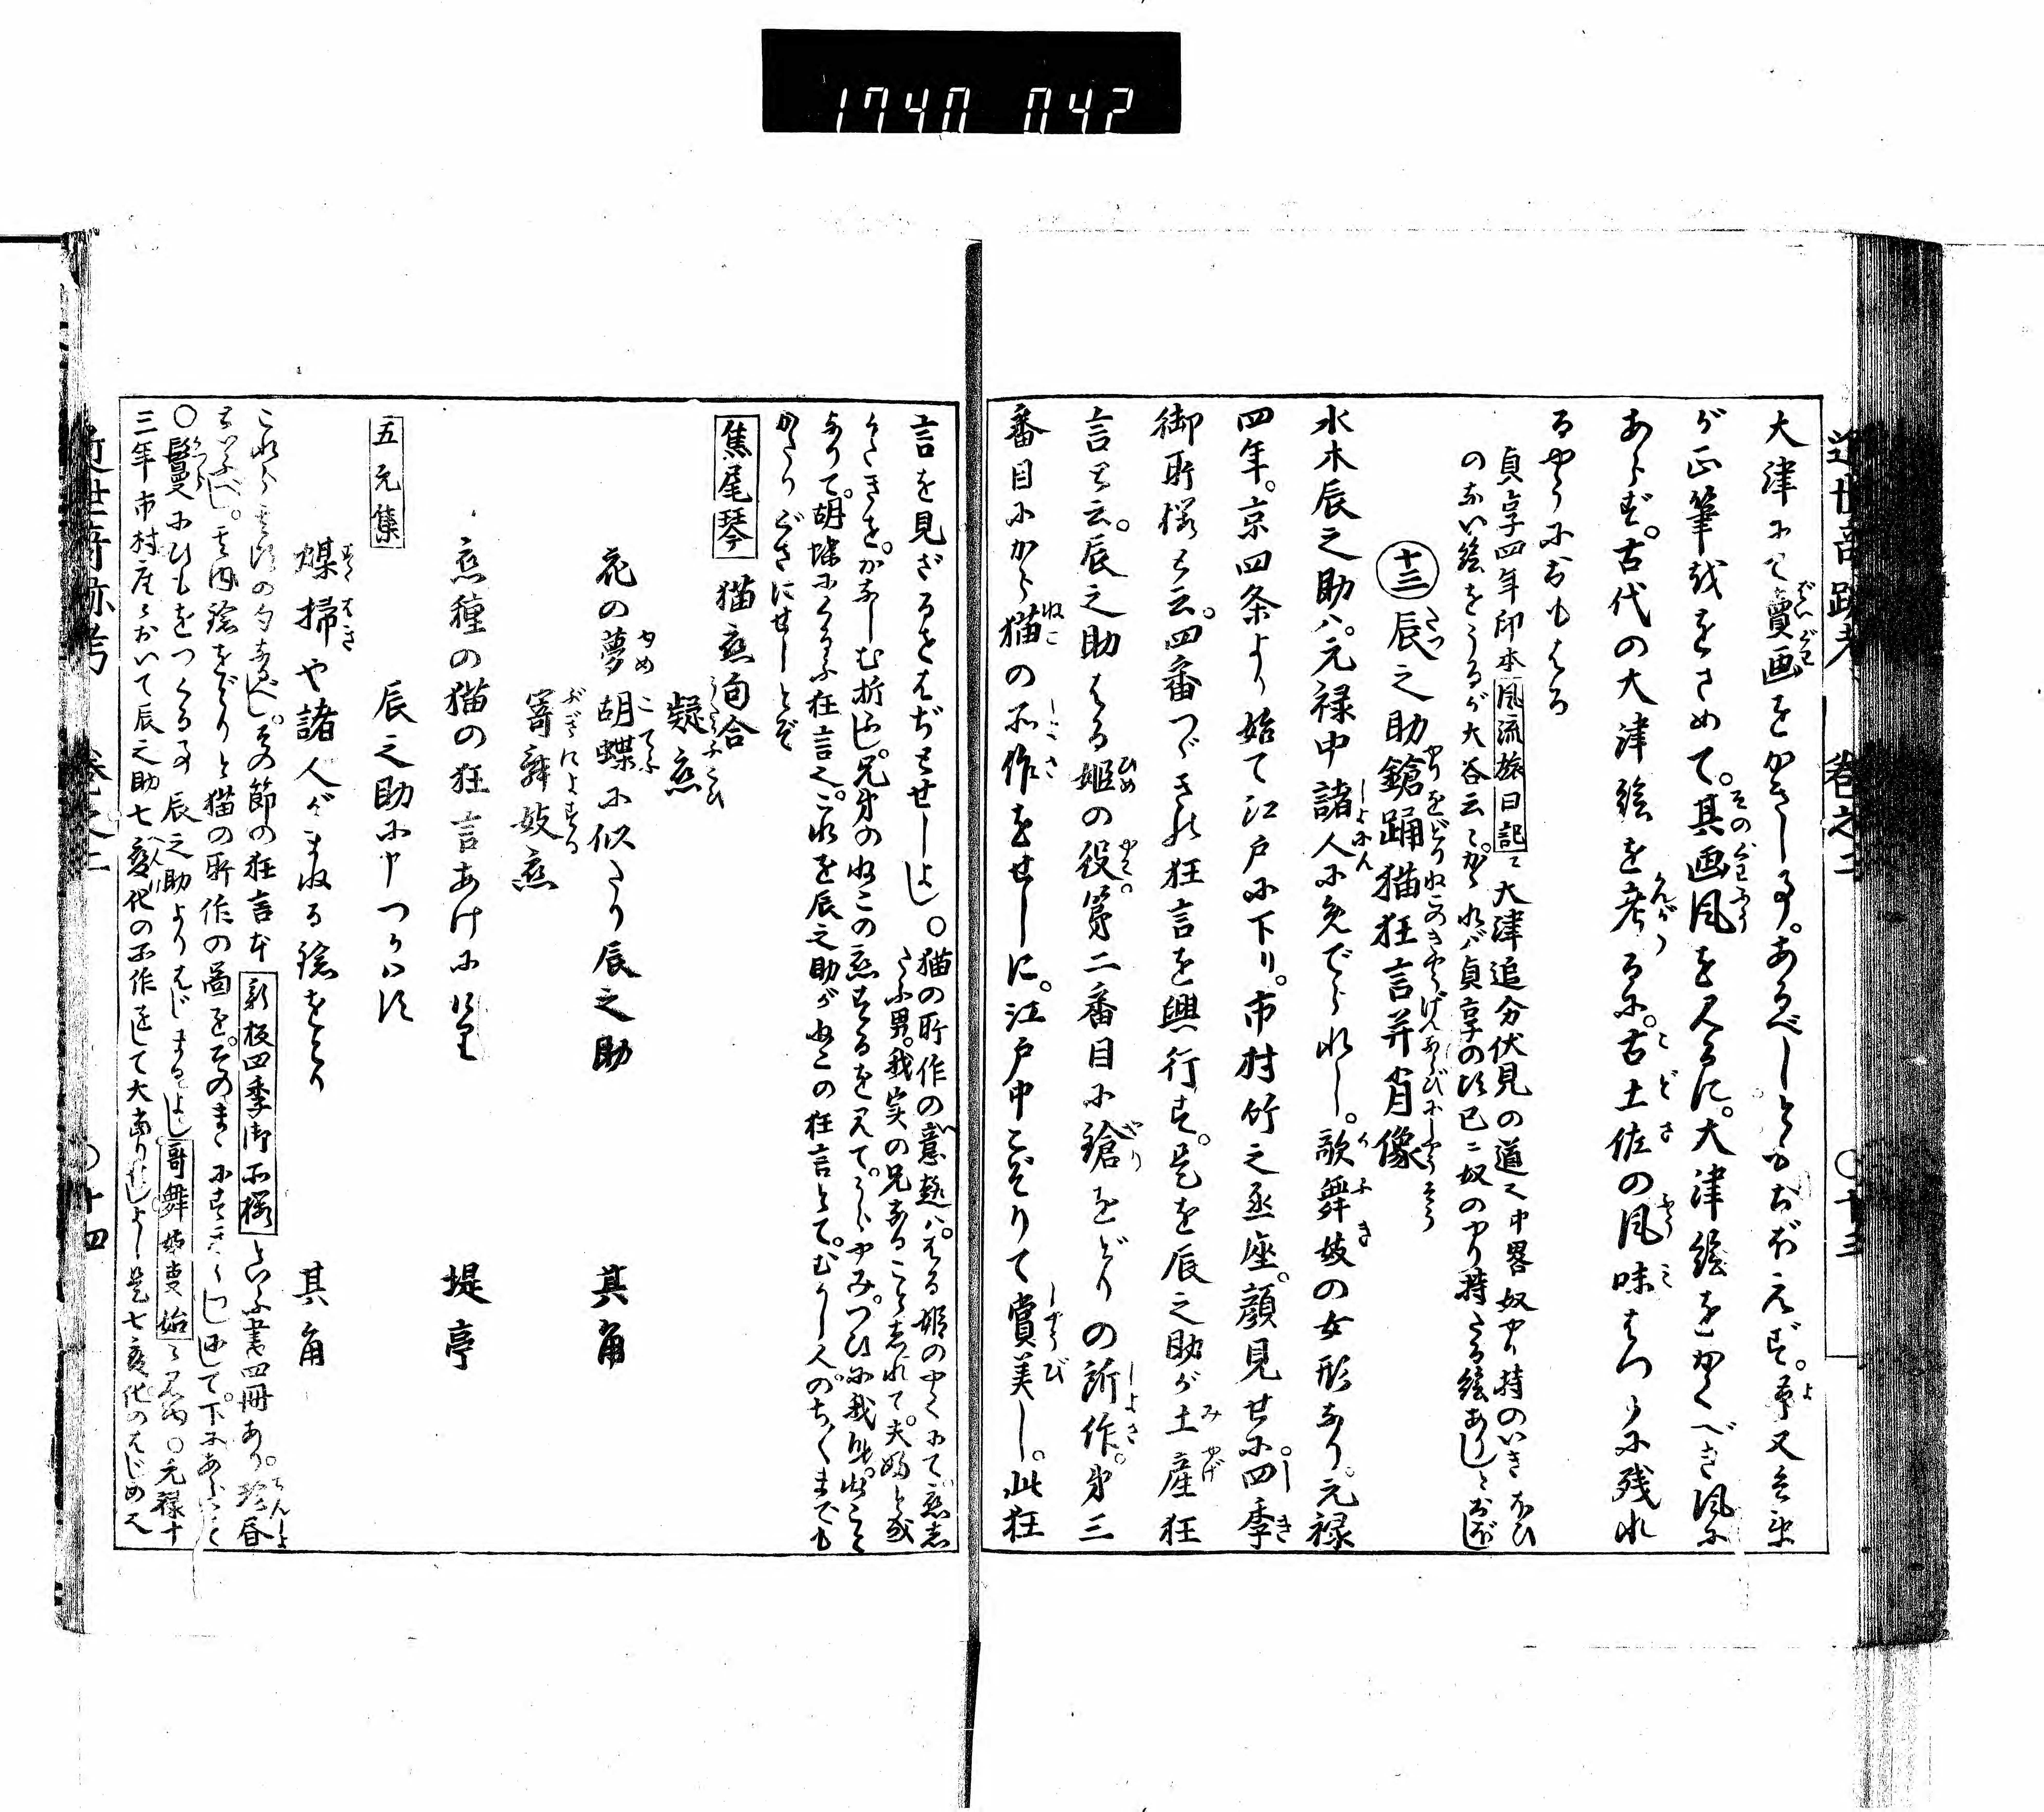 1740 042
近世奇跡考 巻之二 ○十三
大津にて賣画をかきし事。あるべしともおぼえず。予又兵衛
が正筆をおさめて。其画風を見るに。大津絵をかくべき風に
あらず。古代の大津絵を考るに。古土佐の風味はつかに残れ
るやうにおもはる
貞享四年印本風流旅日記ニ大津追分伏見の道云中畧奴やり持のいきほひ
のない絵をうるが大谷云々かゝれバ貞享の頃已ニ奴のやり持たる絵ありしとおぼし
十三 辰之助鎗踊猫狂言并肖像
水木辰之助ハ。元禄中諸人に愛でられし。歌舞妓の女形なり。元禄
四年。京四条より始て江戸に下り。市村竹之丞座。顔見せに。四季
御所桜と云。四番つゞきの狂言を興行す。是を辰之助が土産狂
言と云。辰之助はる姫の役。第二番目に鎗をどりの所作。第三
番目にから猫の所作をせしに。江戸中こぞりて賞美し。此狂
言を見ざるをはぢとせしよし。○猫の所作の意趣ハ。はる姫のやくにて。恋し
たふ男。我実の兄なることしれて。夫婦と成
がたきを。かなしむ折ふし。兄弟のねこの恋するを見て。うらやみ。つひに我身。此ことに
なりて。胡蝶にくるふ狂言也。これを辰之助がねこの狂言とて。むかし人のちゞくまでも
かたりぐさにせしとぞ
焦尾琴 猫恋句合
疑恋
花の夢胡蝶に似たり辰之助 其角
寄舞妓恋
恋種の猫の狂言あけに 堤亭
五元集
辰之助に申つかはす
煤掃や諸人がまねる鎗をどり 其角
これら其頃の句なるべし。その節の狂言本新板四季御所桜といふ書四冊あり。珍書
といふべし。其内鎗をどりと猫の所作の圖を。そのまゝにすきうつし出して。下にあらはし
○鬘にひもをつくる事辰之助よりはじまるよし哥舞妓事始ニ見ゆ。○元禄十
三年市村座において辰之助七変化の所作をして大当りせしよし是七変化のはじめ也
近世奇跡考 巻之二 ○十四